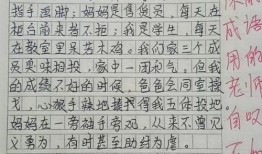 指手画脚；妈妈是售货员，每天在
柜台前来者不拒；我是学生，每天
在教室里呆若木鸡。我们家三个成
员臭味相投，家中一团和气。但我
的成绩不好的时候，爸爸会同室操
戈，心狠手辣地揍得我五体投地
妈妈在一旁袖手旁观，从来不曾见
义勇为，有时甚至助纣为虐。
成语
用的
老师
自叹